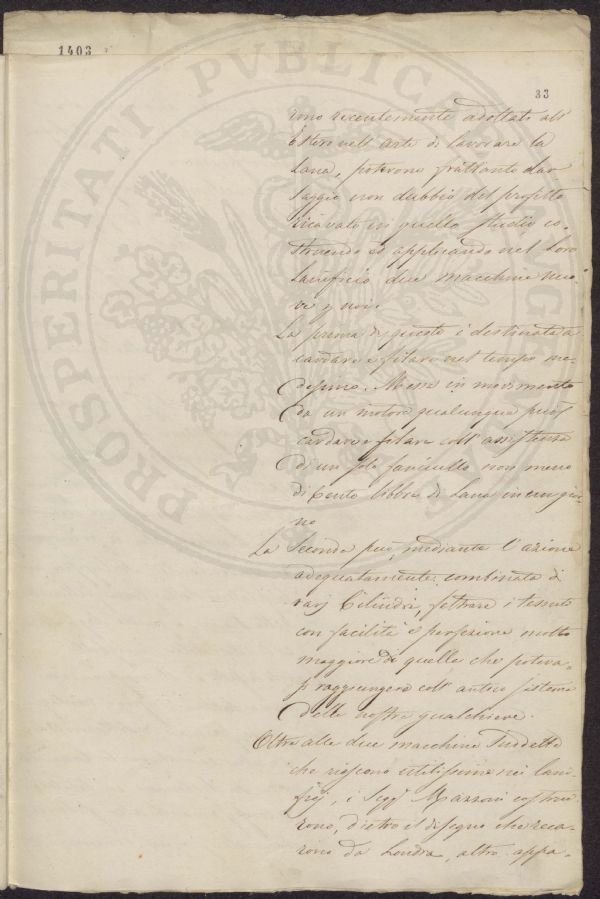 1403
33
PROSPERITATI PVBLICAE AVGENDAE
rono recentemente adottati all'
Estero nell'arte di lavorare la
Lana, poterono frattanto dar
Saggio non dubbio del profitto
ricavato in quello studio, co-
struendo ed applicando nel loro
Lanificio due macchine nuo-
ve p noi.
La prima di queste è destinata a
cardare e filare nel tempo me-
desimo. Messa in movimento
da un motore qualunque può
cardare e filare coll'assistenza
di un solo fanciullo non meno
di Cento libbre di Lana in un gior-
no
La Seconda può, mediante l'azione
adeguatamente combinata di
varj Cilindri, feltrare i tessuti
con facilità e perfezione molto
maggiore di quella che poteva-
si raggiungere coll'antico sistema
delle nostre gualchiere.
Oltre alle due macchine suddette
che riescono utilissime nei lani-
ficj, i Sigg.i Mazzoni costrui-
rono, dietro il disegno che reca-
rono da Londra, altro appa-